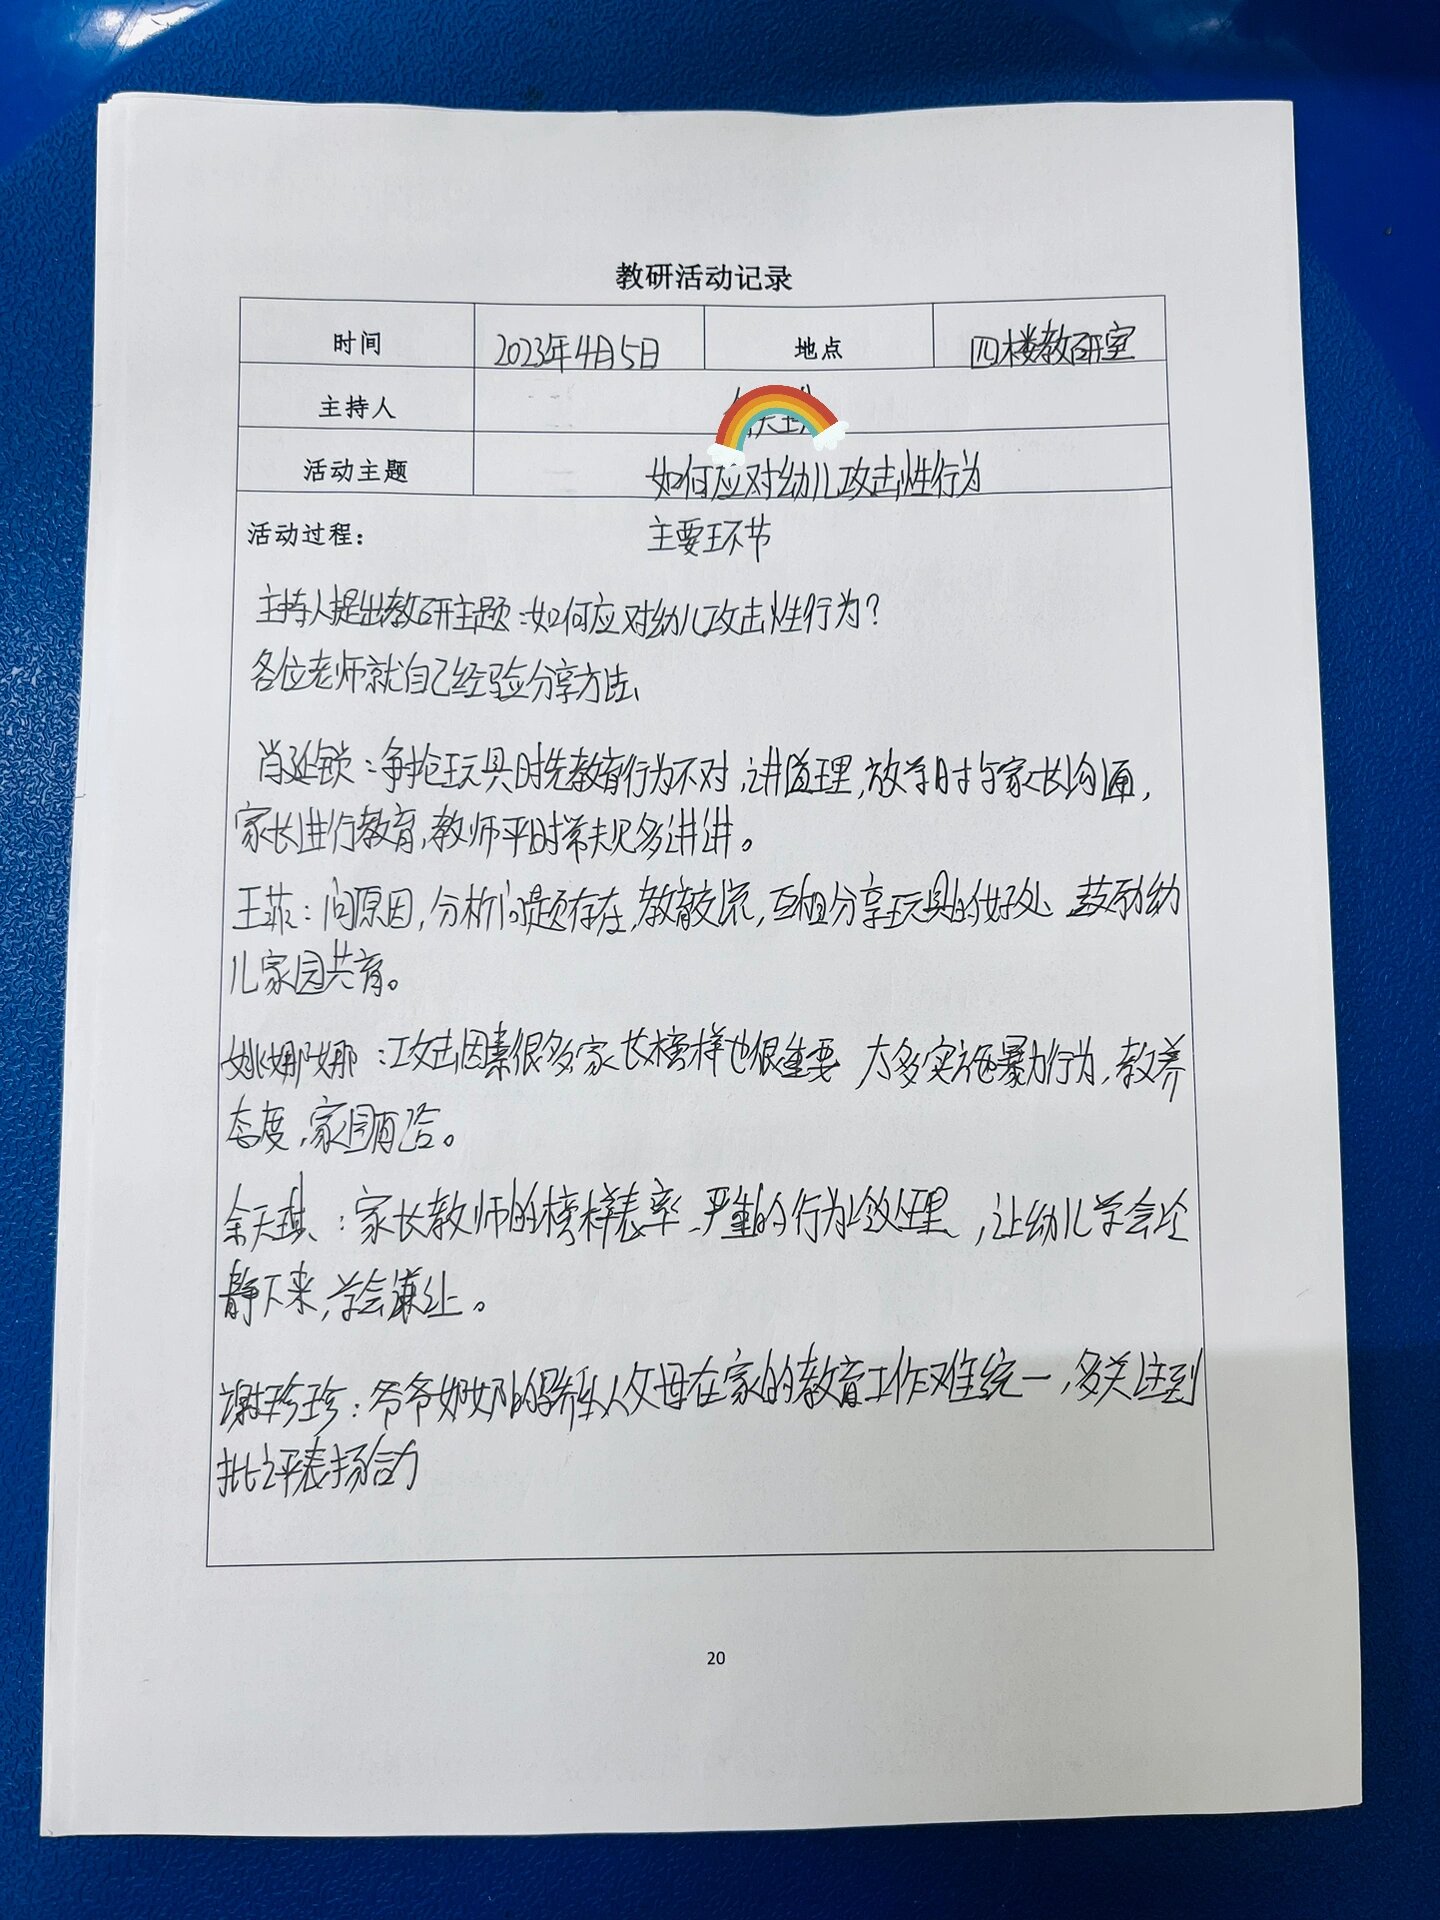 教研活动记录
时间 2023年4月5日 地点 四楼教研室
主持人
活动主题 如何应对幼儿攻击性行为
活动过程： 主要环节
主持人提出教研主题：如何应对幼儿攻击性行为？
各位老师就自己经验分享方法、
肖延锁：争抢玩具时先教育行为不对，讲道理，放学时与家长沟通，
家长进行教育，教师平时常规多讲讲。
王菲：问原因，分析问题存在，教育交流，互相分享玩具的好处 鼓励幼
儿家园共育。
姚娜娜：攻击因素很多，家长榜样也很重要 大多实施暴力行为，教养
态度，家园配合。
余天琪：家长教师的榜样表率、严重的行为冷处理，让幼儿学会冷
静下来，学会谦让。
谢珍珍：爷爷奶奶的 父母在家的教育工作难统一，多关注到
批评表扬合力
20